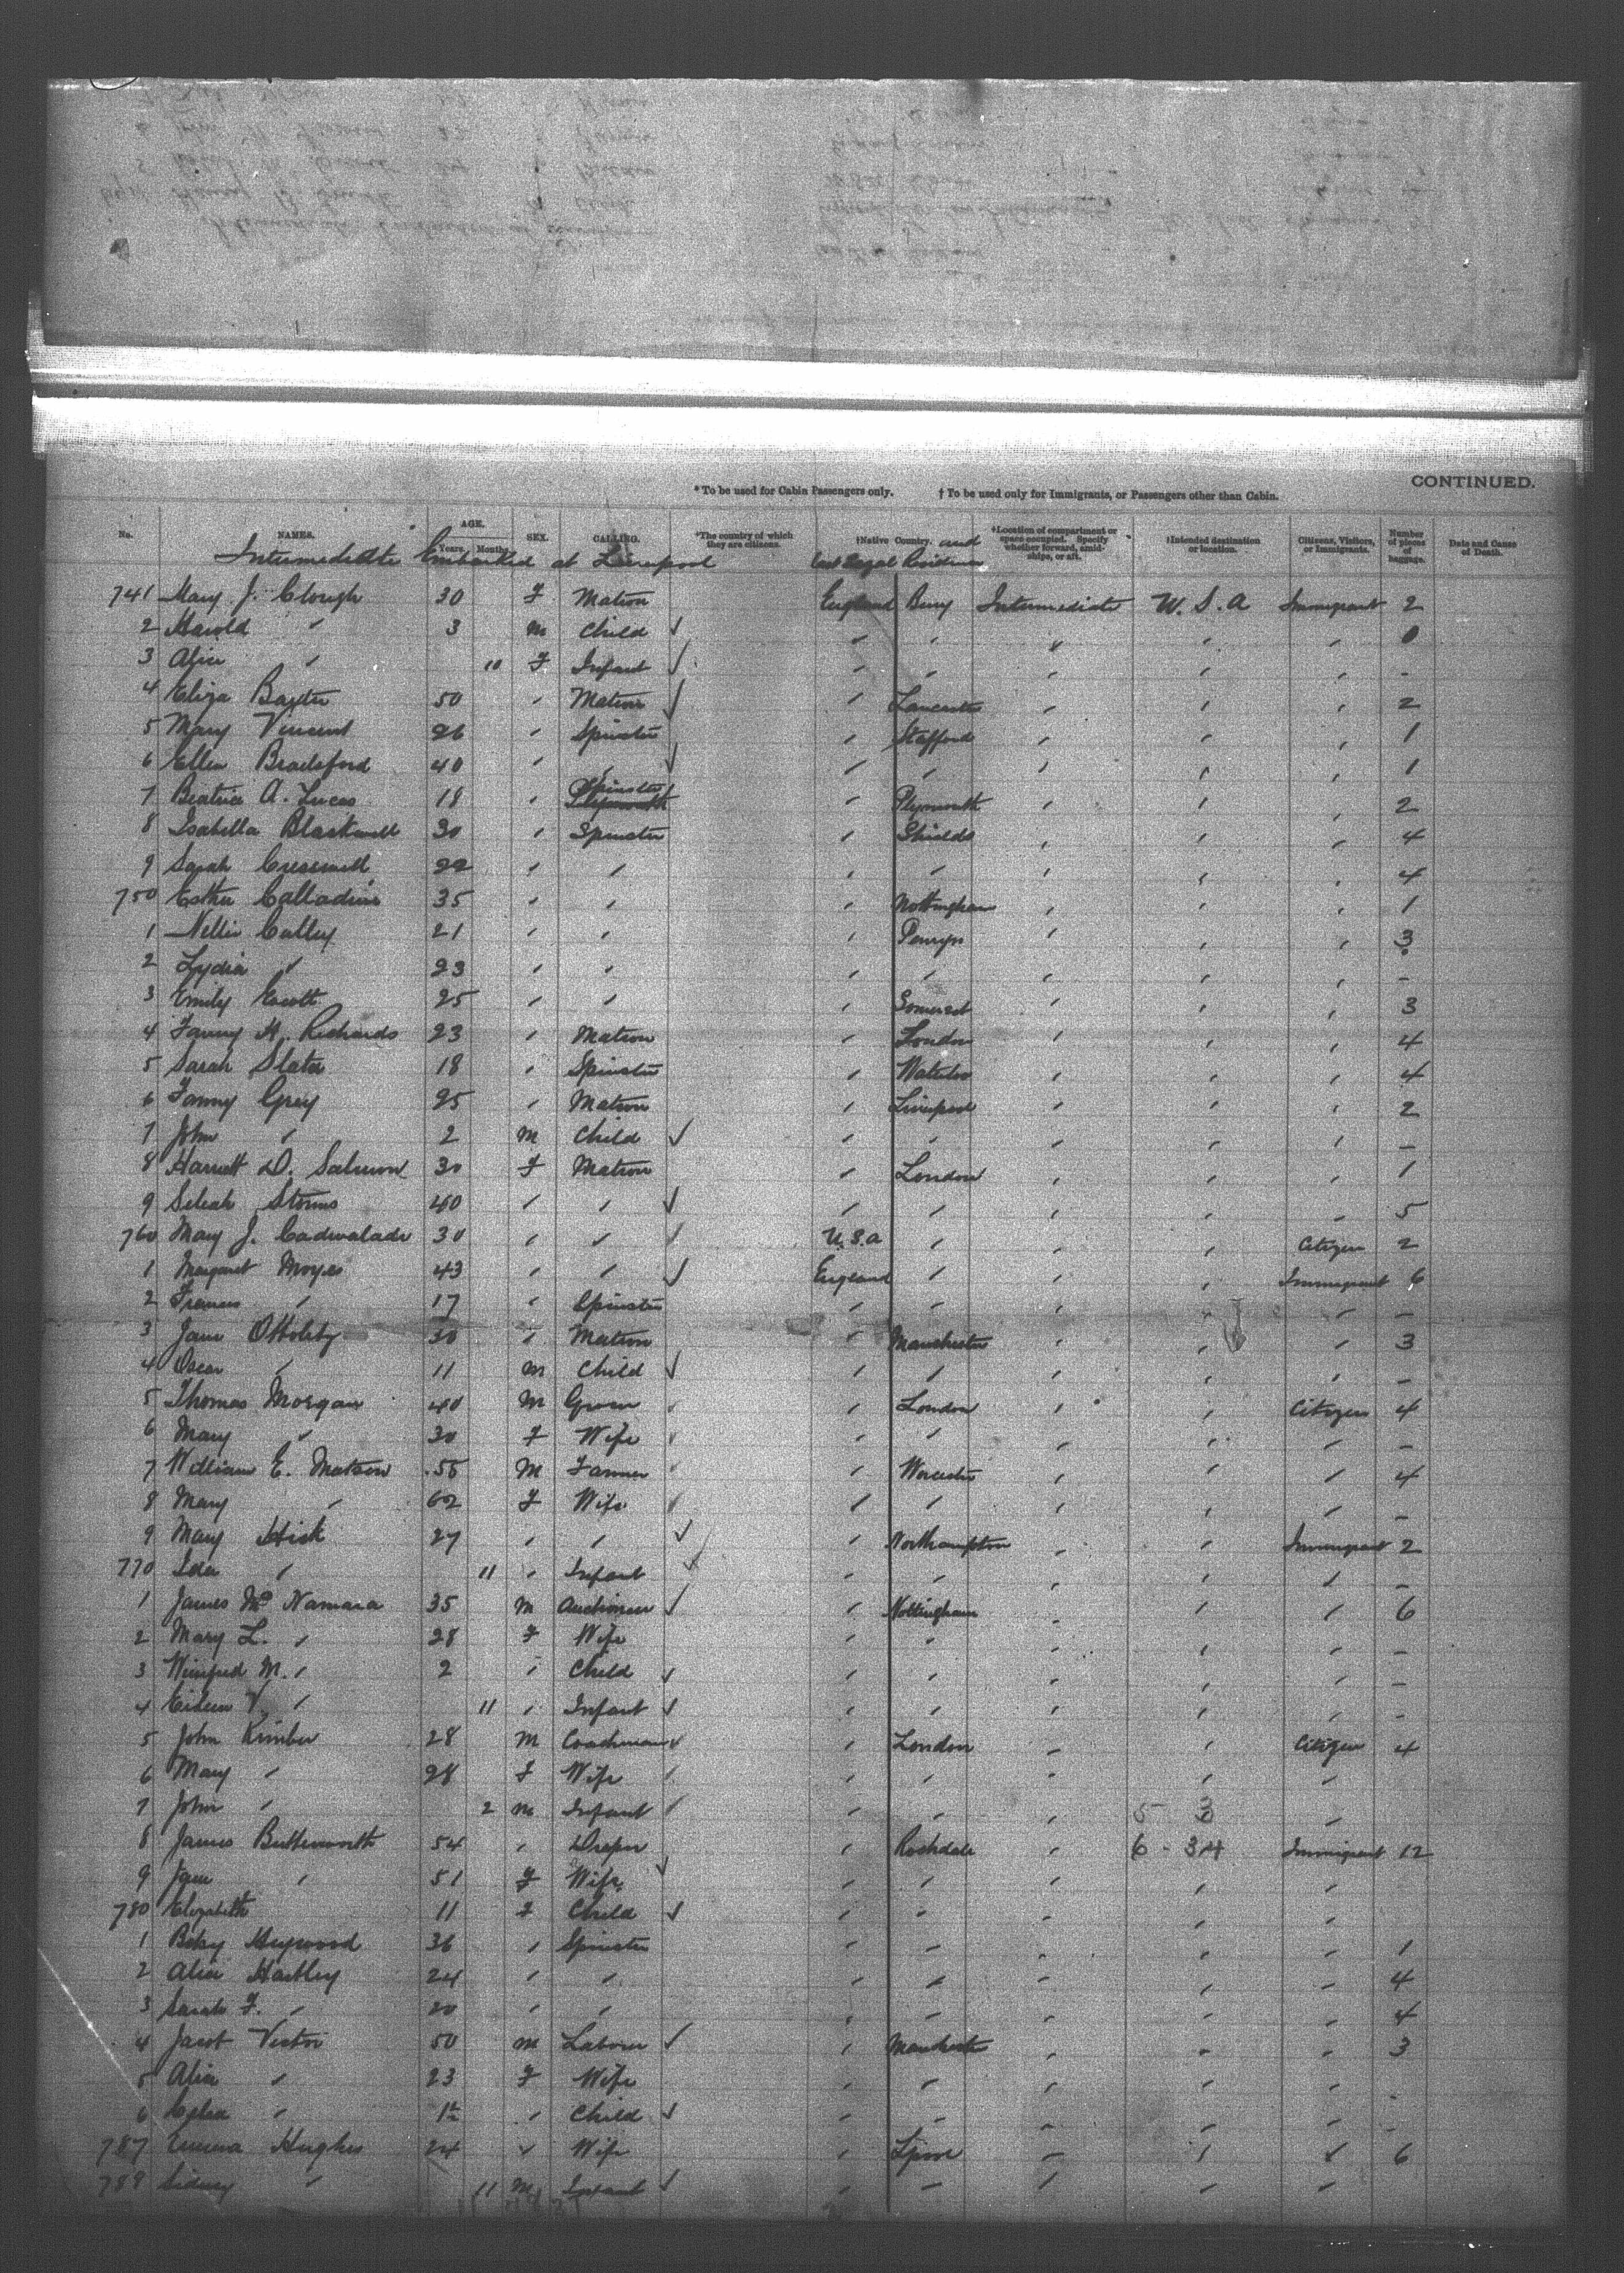 CONTINUED.
* To be used for Cabin Passengers only. † To be used only for Immigrants, or Passengers other than Cabin.
No. NAMES. AGE. Years. Months. SEX. CALLING. *The country of which they are citizens. †Native Country. and last Legal Residence †Location of compartment or space occupied. Specify whether forward, amidships, or aft. †Intended destination or location. Citizens, Visitors, or Immigrants. Number of pieces of baggage. Date and Cause of Death.
Intermediate Embarked at Liverpool
741 Mary J. Clough 30 F Matron England Bury Intermediate U.S.A Immigrant 2
2 Harold " 3 M Child ✓ " " " " " 0
3 Alice " 10 F Infant ✓ " " " " " -
4 Eliza Baxter 50 " Matron ✓ " Lancaster " " " 2
5 Mary Vincent 26 " Spinster " Stafford " " " 1
6 Ellen Bradsford 40 " " ✓ " " " " " 1
7 Beatrice A. Lucas 18 " Spinster " Plymouth " " " 2
8 Isabella Blackwell 30 " Spinster " Shields " " " 4
9 Sarah Cresswell 22 " " " " " " " 4
750 Esther Calladine 35 " " " Nottingham " " " 1
1 Nellie Calley 21 " " " Penryn " " " 3
2 Lydia " 23 " " " " " " " -
3 Emily Escott 25 " " " Somerset " " " 3
4 Fanny H. Richards 23 " Matron " London " " " 4
5 Sarah Slater 18 " Spinster " Waterloo " " " 4
6 Fanny Grey 25 " Matron " Liverpool " " " 2
7 John " 2 M Child ✓ " " " " " -
8 Harriett D. Salmon 30 F Matron " London " " " 1
9 Storms 40 " " ✓ " " " " " 5
760 Mary J. Cadwalader 30 " " U.S.A " " " Citizen 2
1 Margaret Moyes 43 " " ✓ England " " " Immigrant 6
2 Frances " 17 " Spinster " " " " " -
3 Jane 30 " Matron " Manchester " " " 3
4 Oscar " 11 M Child ✓ " " " " " -
5 Thomas Morgan 40 M Grocer " London " " Citizen 4
6 Mary " 30 F Wife " " " " " -
7 William E. Matson 55 M Farmer " Worcester " " " 4
8 Mary " 62 F Wife " " " " " -
9 Mary Hick 27 " " ✓ " Northampton " " Immigrant 2
770 Ida " 11 " Infant ✓ " " " " " -
1 James McNamara 35 M Auctioneer ✓ " Nottingham " " " 6
2 Mary L. " 28 F Wife " " " " " -
3 Winifred M. " 2 " Child ✓ " " " " " -
4 Eileen V. " 11 " Infant ✓ " " " " " -
5 John Kimber 28 M Coachman ✓ " London " " Citizen 4
6 Mary " 28 F Wife " " " " "
7 John " 2 M Infant " " " 5 3 "
8 James Butterworth 54 " Draper " Rochdale " 6 - 34 Immigrant 12
9 Jane " 51 F Wife ✓ " " " " "
780 Elizabeth 11 F Child ✓ " " " " "
1 Betsy Heywood 36 " Spinster " " " " " 1
2 Alice Hartley 24 " " " " " " " 4
3 Sarah F. " 20 " " " " " " " 4
4 Jacob Victor 50 M Laborer ✓ " Manchester " " " 3
5 Alice " 23 F Wife " " " " " -
6 " 1½ " Child ✓ " " " " " -
787 Emma Hughes 24 " Wife " L'pool " " " 6
788 Sidney " 11 M Infant ✓ " " " " "